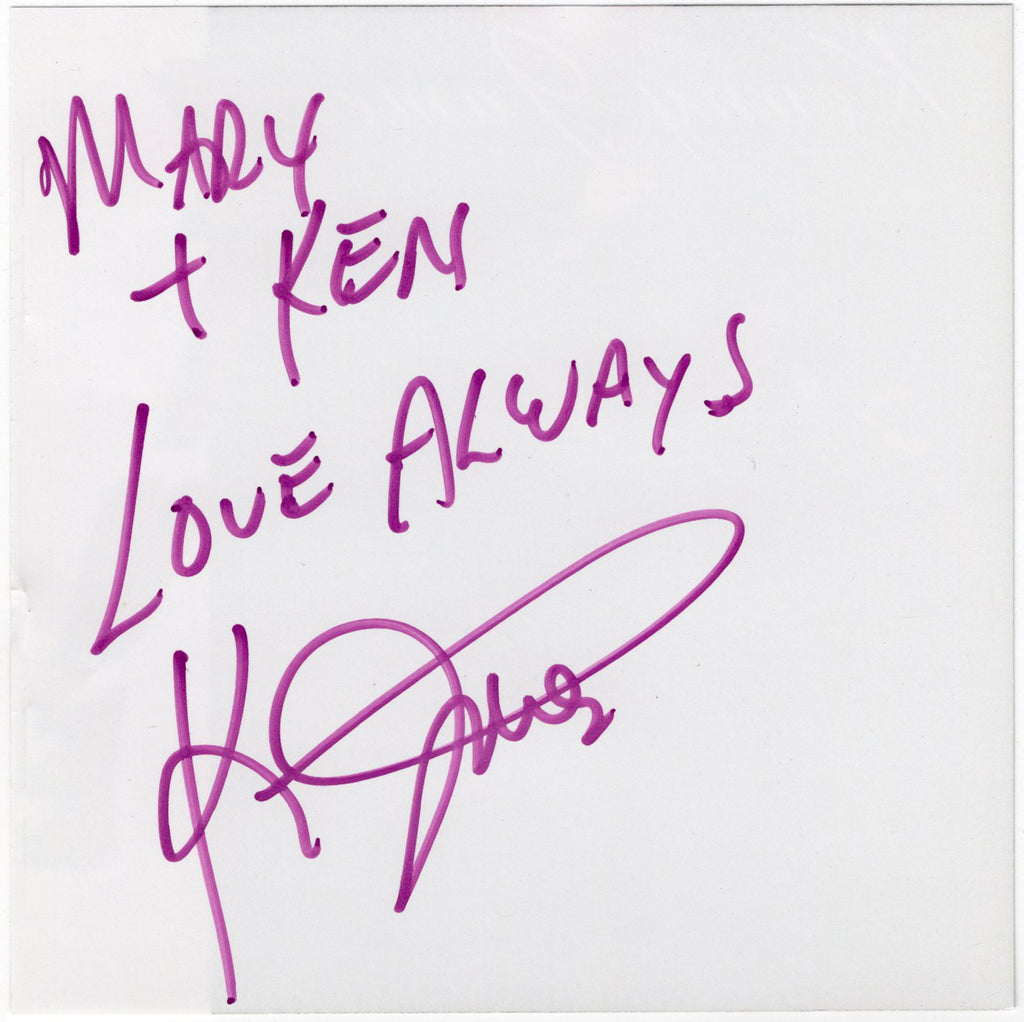 MARY
+ KEN
LOVE ALWAYS